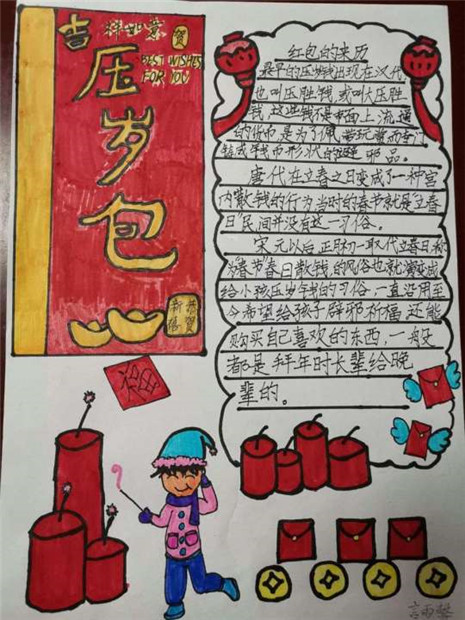 吉祥如意 贺
BEST WISHES
FOR YOU
压岁包
恭贺
新禧
福
红包的来历
最早的压岁钱出现在汉代
也叫压胜钱,或叫大压胜
钱,这些钱不是市面上流通
的货币,是为了佩带玩赏而专门
铸成钱币形状的避邪品。
唐代在立春之日变成了一种宫
内散钱的行为当时的春节就是立春
日,民间并没有这一习俗。
宋元以后,正月初一取代立春日,称
为春节春日散钱的风俗也就演变成
给小孩压岁钱的习俗一直沿用至
今希望给孩子辟邪祈福,还能
购买自己喜欢的东西,一般
都是拜年时长辈给晚
辈的。